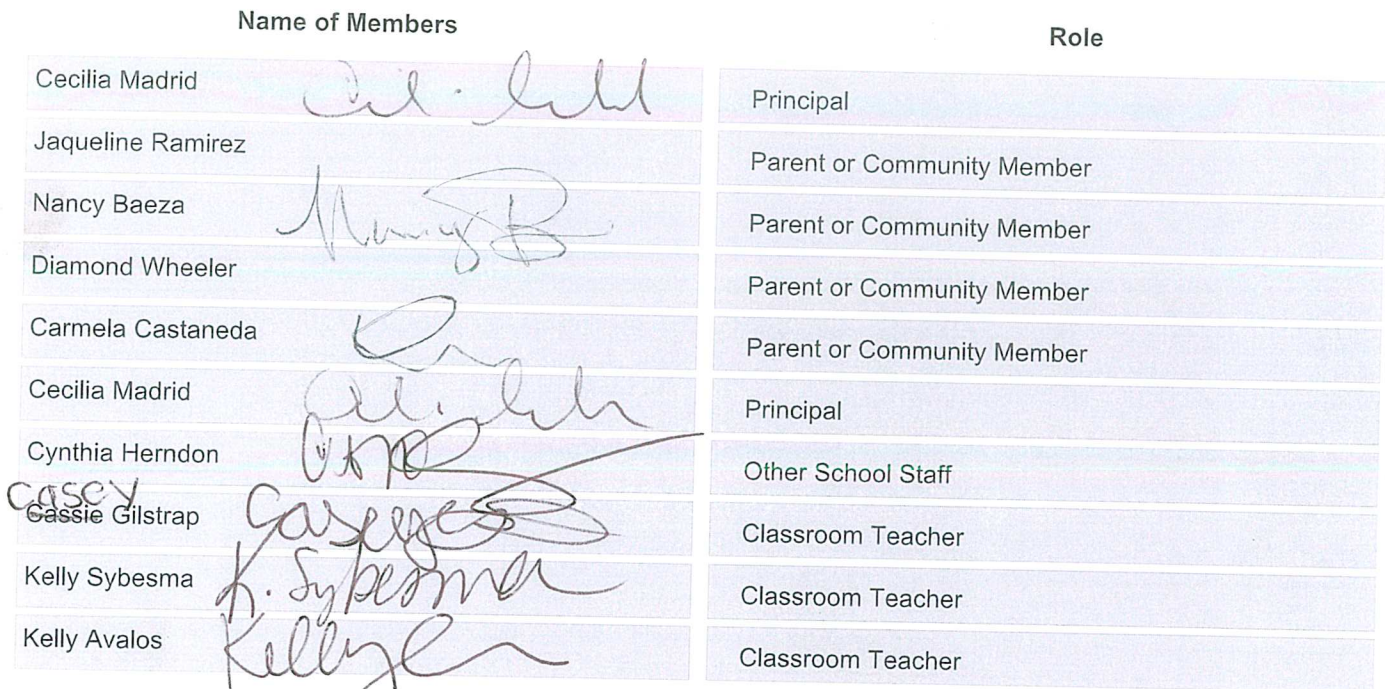 Name of Members Role
Cecilia Madrid Principal
Jaqueline Ramirez Parent or Community Member
Nancy Baeza Nancy B Parent or Community Member
Diamond Wheeler Parent or Community Member
Carmela Castaneda Parent or Community Member
Cecilia Madrid Principal
Cynthia Herndon Other School Staff
Casey
Cassie Gilstrap Casey Classroom Teacher
Kelly Sybesma K. Sybesma Classroom Teacher
Kelly Avalos Kelly Classroom Teacher